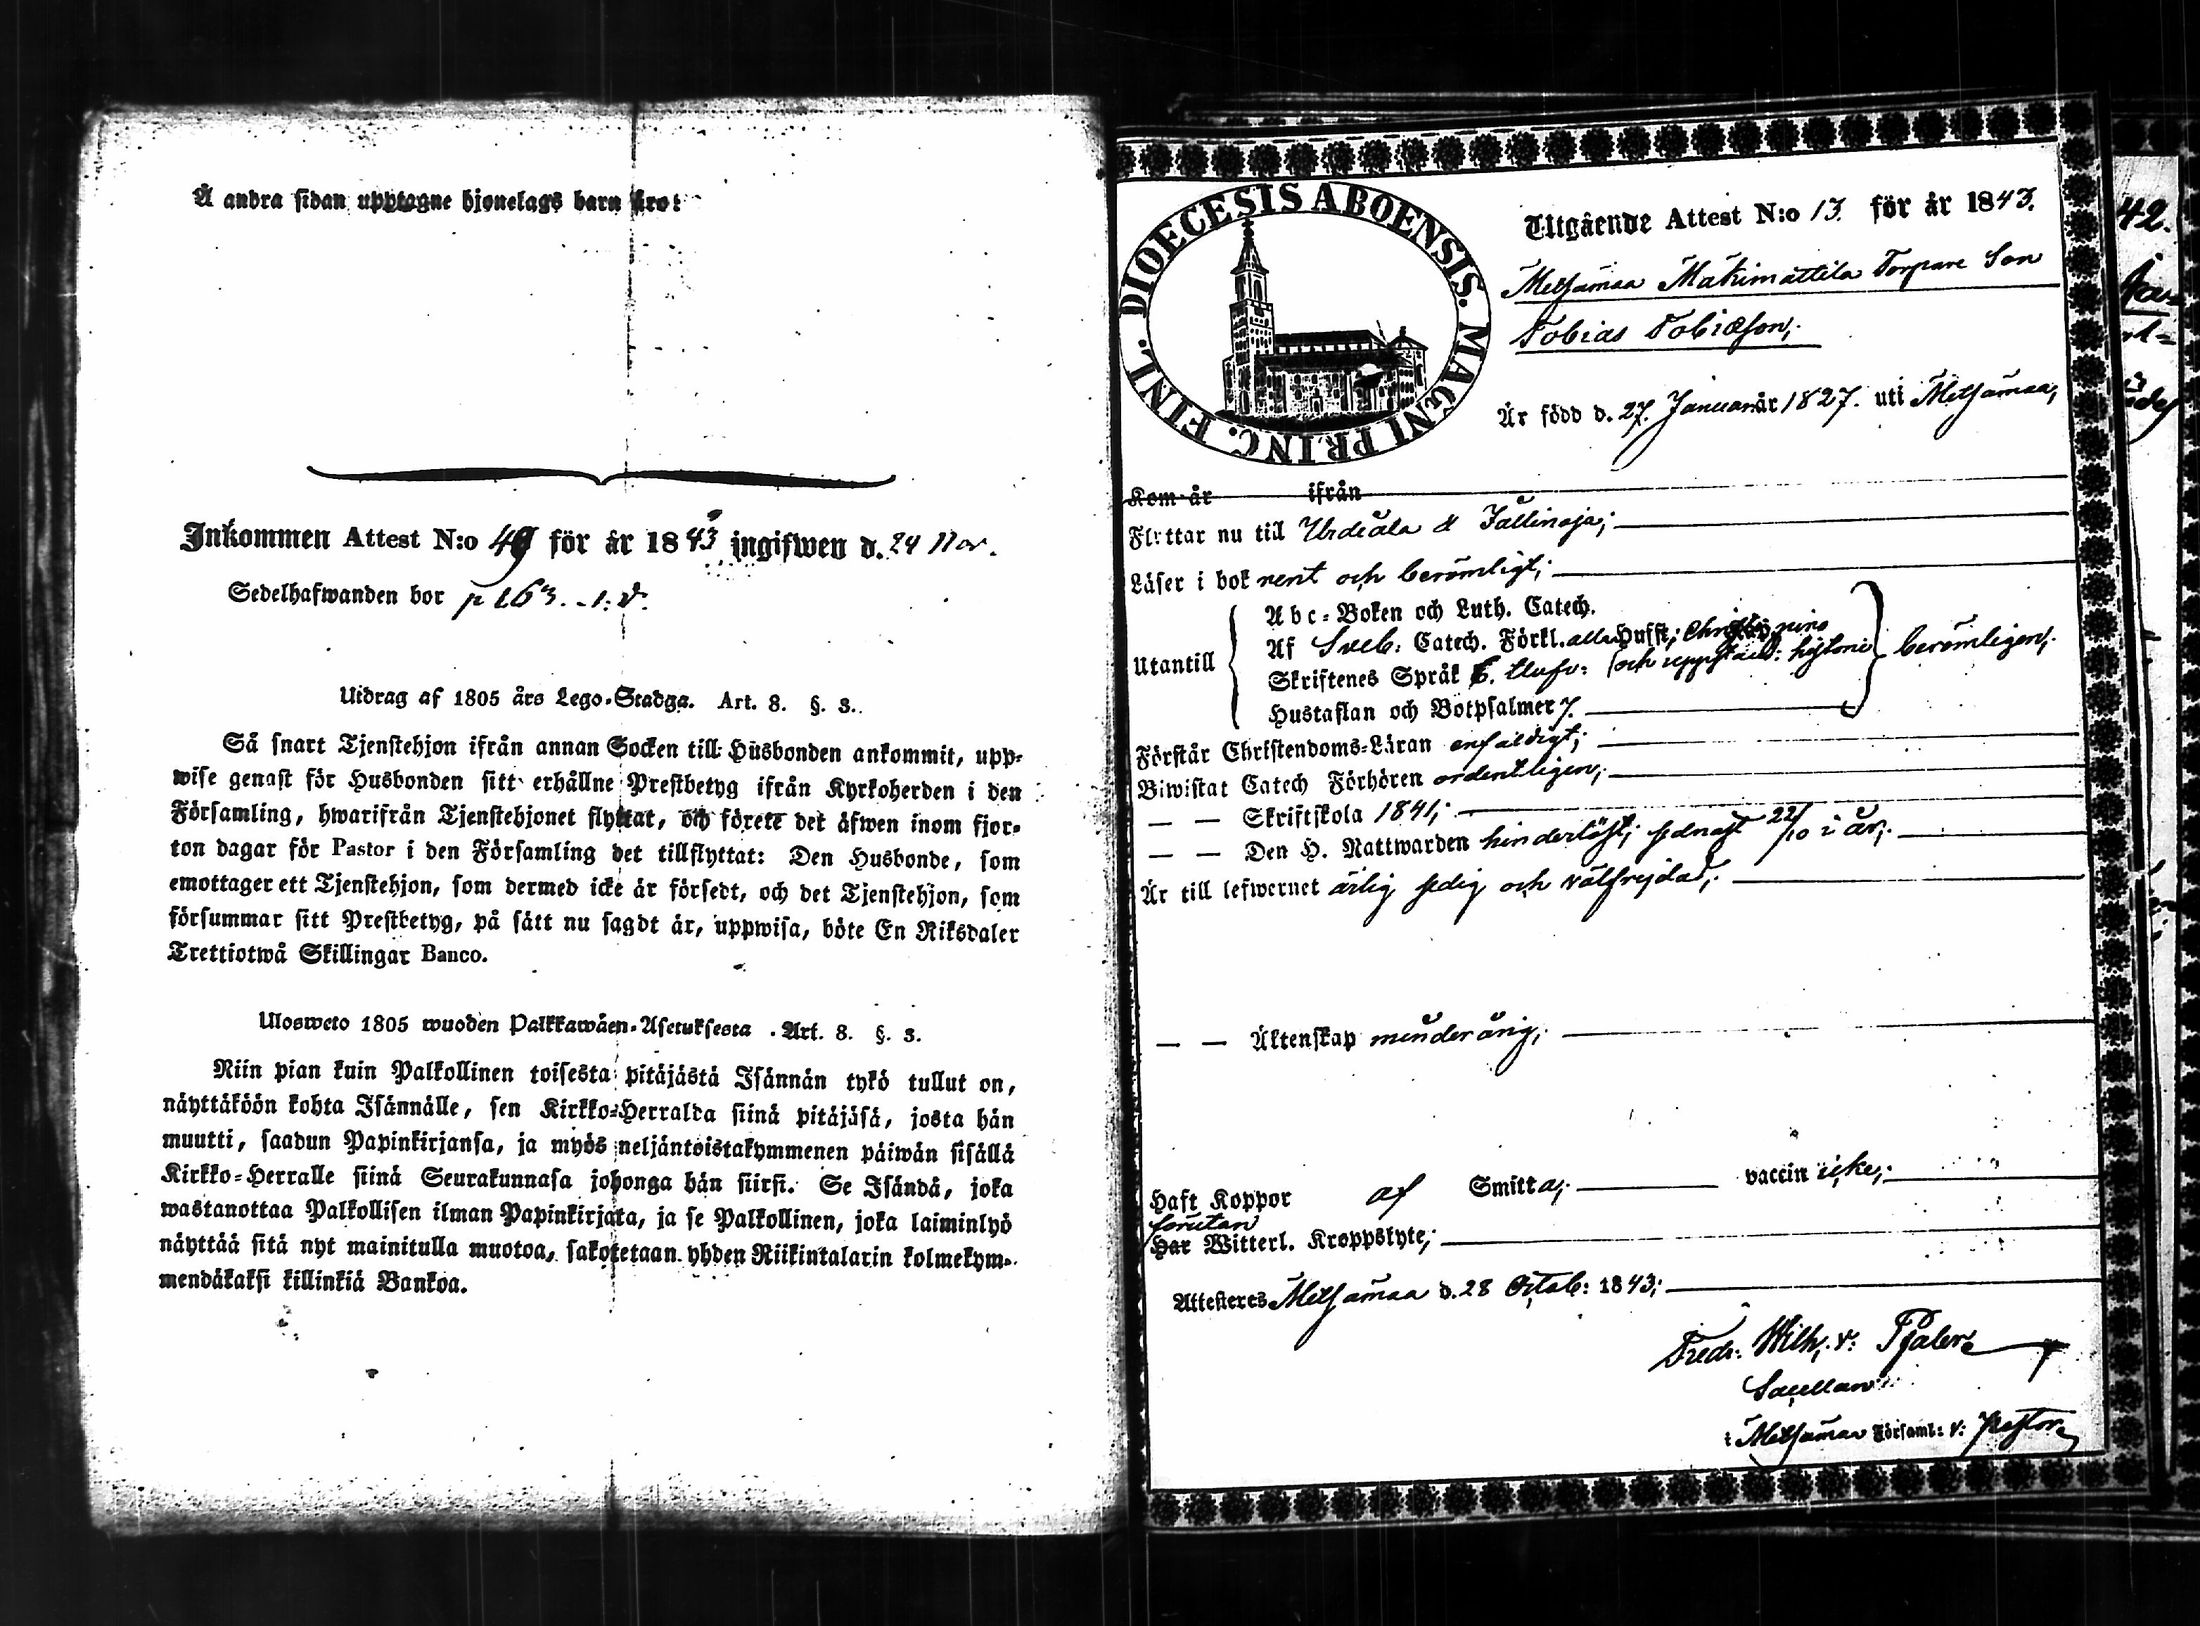 Å andra sidan upptagne hjonelags barn äro:
Inkommen Attest N:o 49 för år 1843 ingifwen d. 24 Nov.
Sedelhafwanden bor p 163.
Utdrag af 1805 års Lego-Stadga. Art. 8. §. 3.
Så snart Tjenstehjon ifrån annan Socken till Husbonden ankommit, upp-
wise genast för Husbonden sitt erhållne Prestbetyg ifrån Kyrkoherden i den
Församling, hwarifrån Tjenstehjonet flyttat, och förete det äfwen inom fjor-
ton dagar för Pastor i den Församling det tillflyttat: Den Husbonde, som
emottager ett Tjenstehjon, som dermed icke är försedt, och det Tjenstehjon, som
försummar sitt Prestbetyg, på sätt nu sagdt är, uppwisa, böte En Riksdaler
Trettiotwå Skillingar Banco.
Ulosweto 1805 wuoden Palkkawäen-Asetuksesta. Art. 8. §. 3.
Niin pian kuin Palkollinen toisesta pitäjästä Isännän tykö tullut on,
näyttäköön kohta Isännälle, sen Kirkko-Herralda siinä pitäjäsä, josta hän
muutti, saadun Papinkirjansa, ja myös neljäntoistakymmenen päiwän sisällä
Kirkko-Herralle siinä Seurakunnasa johonga hän siirsi. Se Isändä, joka
wastanottaa Palkollisen ilman Papinkirjata, ja se Palkollinen, joka laiminlyö
näyttää sitä nyt mainitulla muotoa, sakotetaan yhden Riikintalarin kolmekym-
mendäkaksi killinkiä Bankoa.
DIOECESIS ABOENSIS. MAGNI PRINC. FINL.
Utgående Attest N:o 13. för år 1843.
Metsämaa Mäkimattila Torpare Son
Tobias Tobiæson;
Är född d. 27. Januari år 1827. uti Metsämaa;
Kom år ifrån
Flyttar nu till Urdiala & Tallinoja;
Läser i bok rent och berömligt;
Utantill
Abc-Boken och Luth. Catech.
Af Sveb: Catech. Förkl. alla Hufst; Christi pino
Skriftenes Språk och uppst: historie berömligen;
Hustaflan och Botpsalmer 7.
Förstår Christendoms-Läran enfaldigt;
Biwistat Catech Förhören ordentligen;
— — Skriftskola 1841;
— — Den H. Nattwarden hinderlöst; sednast 22/10 i år;
Är till lefwernet ärlig sedig och välfrejdad;
— — Äktenskap minderårig;
Haft Koppor af Smitta; vaccin icke;
förutan
Har Witterl. Kroppslyte;
Attesteres Metsämaa d. 28 Octob: 1843;
Fredr: Wilh. v: Pfaler
Sacellan
i Metsämaa Församl: v: Pastor
42.